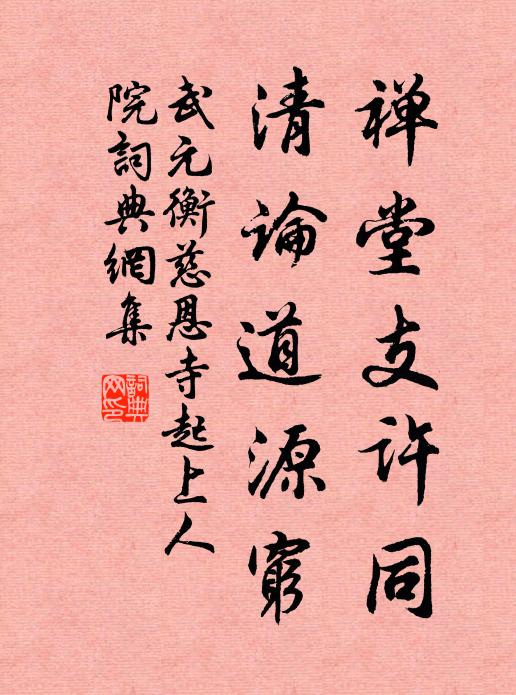 禅堂支许同
清論道源窮
武元衡慈恩寺起上人
院詞典網集
詞典网印